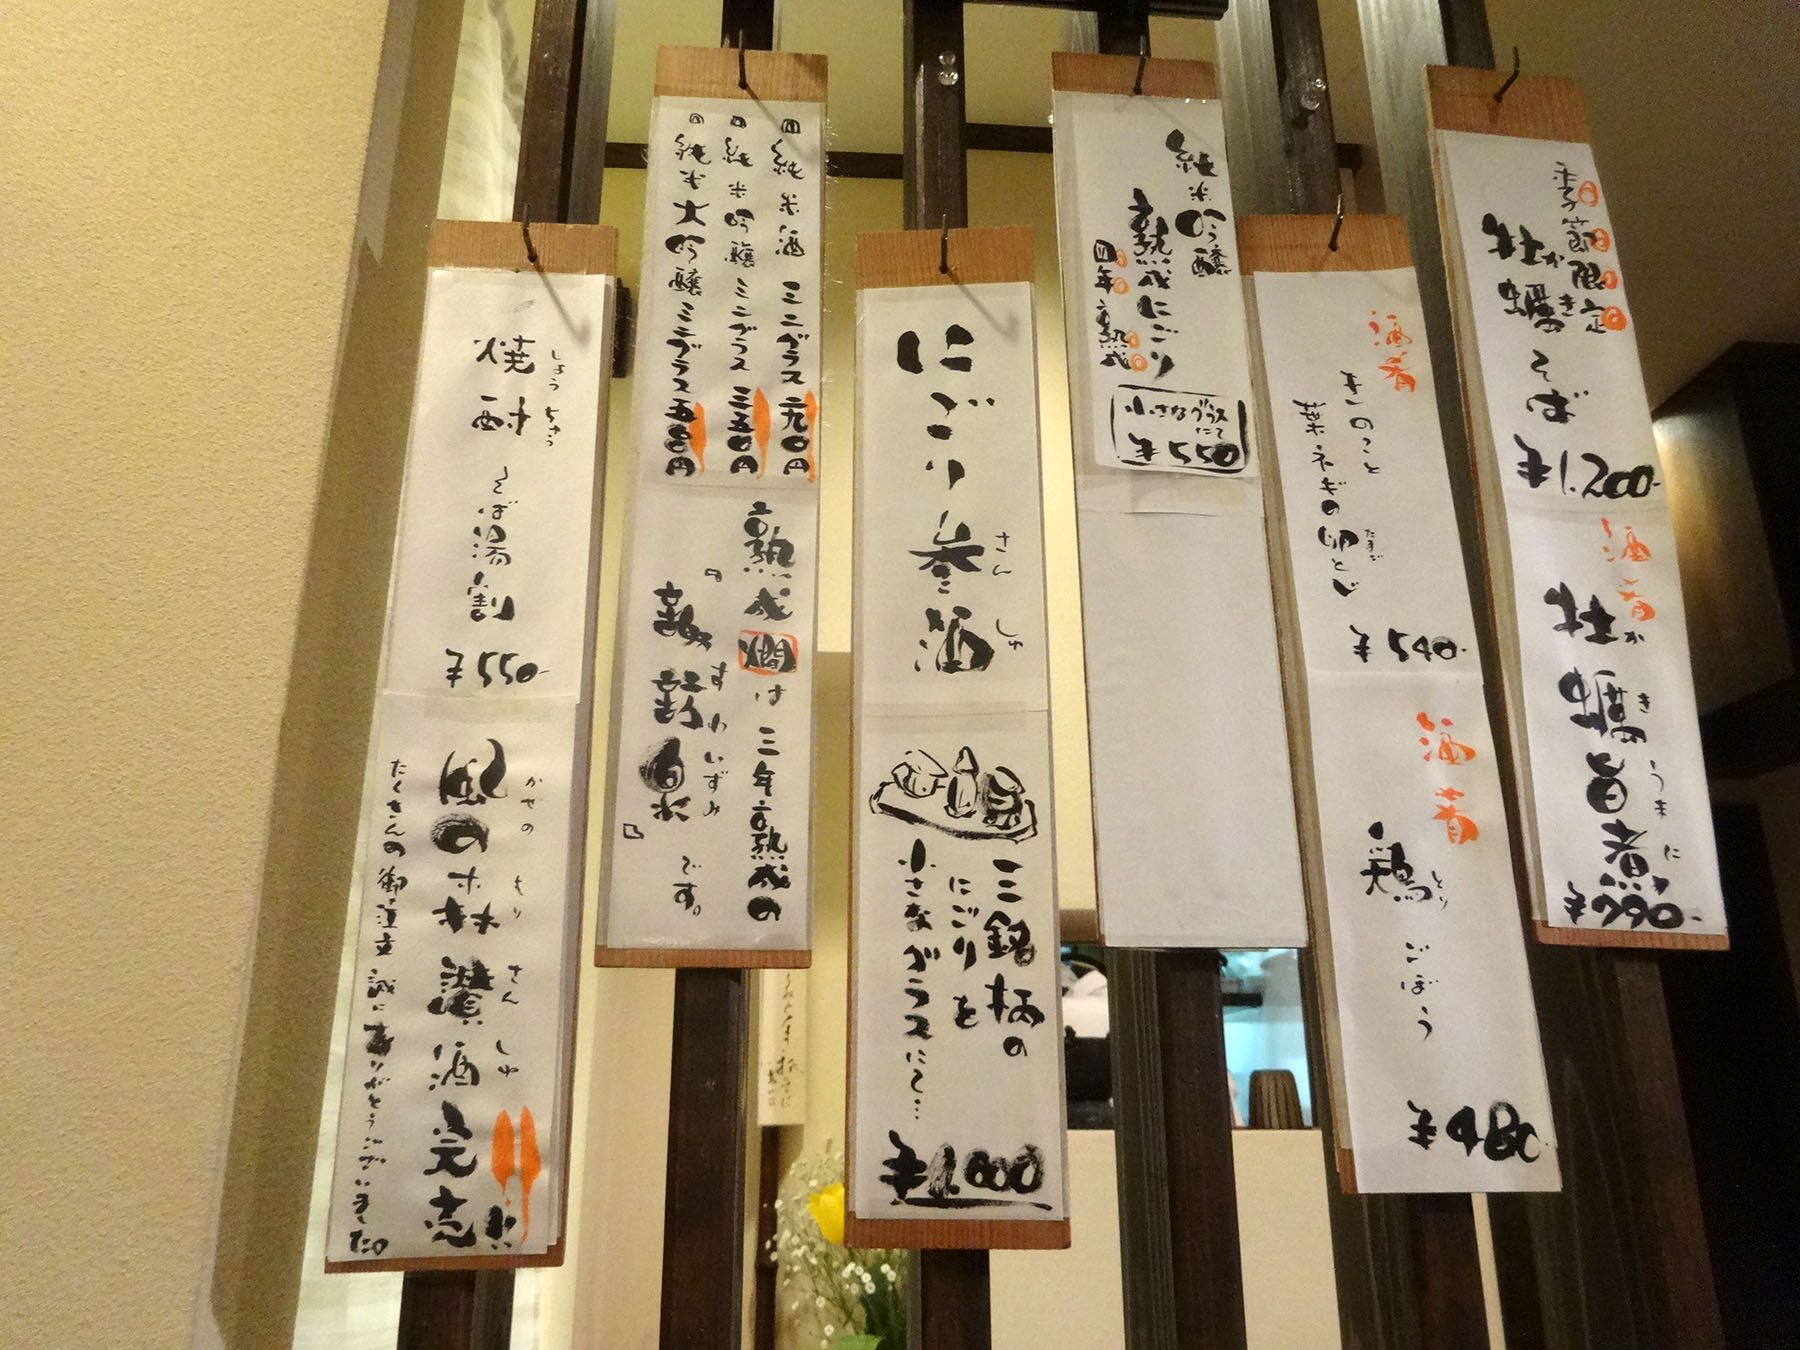 季節限定
牡蠣そば
かき
¥1,200-
酒肴
牡蠣旨煮
か き うま に
¥660-
酒肴
きのこと
葉ネギの卵とじ
たまご
¥540-
酒肴
鶏ごぼう
とり
¥480-
純米吟醸
熟成にごり
四年熟成
小さなグラス
にて
¥550
にごり参酒
さん しゅ
三銘柄の
にごりを
小さなグラスにて…
¥1,000
純米酒 ミニグラス 二九〇円
純米吟醸 ミニグラス 三五〇円
純米大吟醸 ミニグラス 五〇〇円
熟成燗は 三年熟成の
すわいずみ
です。
焼酎 そば湯割
しょう ちゅう
¥550-
風の森 讃酒 完売
かぜの もり さん しゅ
たくさんの御注文 誠にありがとうございました